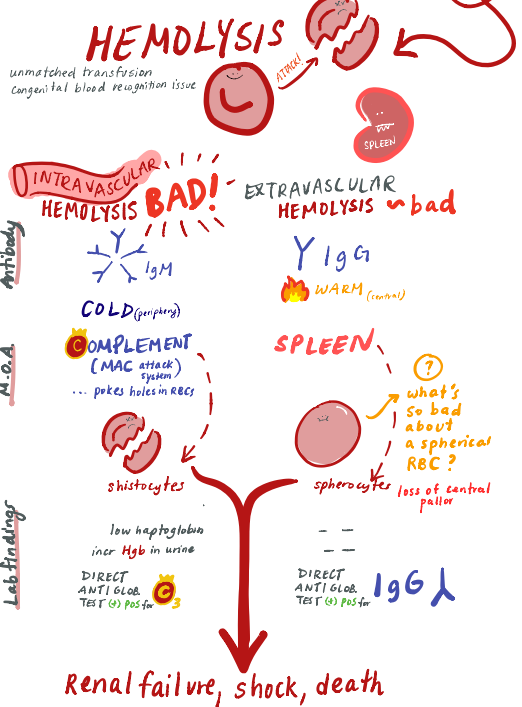 HEMOLYSIS
unmatched transfusion
congenital blood recognition issue
ATTACK!
SPLEEN
INTRAVASCULAR
HEMOLYSIS BAD!
EXTRAVASCULAR
HEMOLYSIS ~ bad
Antibody
IgM
COLD (periphery)
IgG
WARM (central)
M.O.A
COMPLEMENT
(MAC attack system)
... pokes holes in RBCs
SPLEEN
?
what's
so bad
about
a spherical
RBC?
shistocytes
spherocytes
loss of central
pallor
Lab findings
low haptoglobin
incr Hgb in urine
DIRECT
ANTI GLOB.
TEST (+) POS for C3
-- --
-- --
DIRECT
ANTI GLOB.
TEST (+) POS for IgG
Renal failure, shock, death